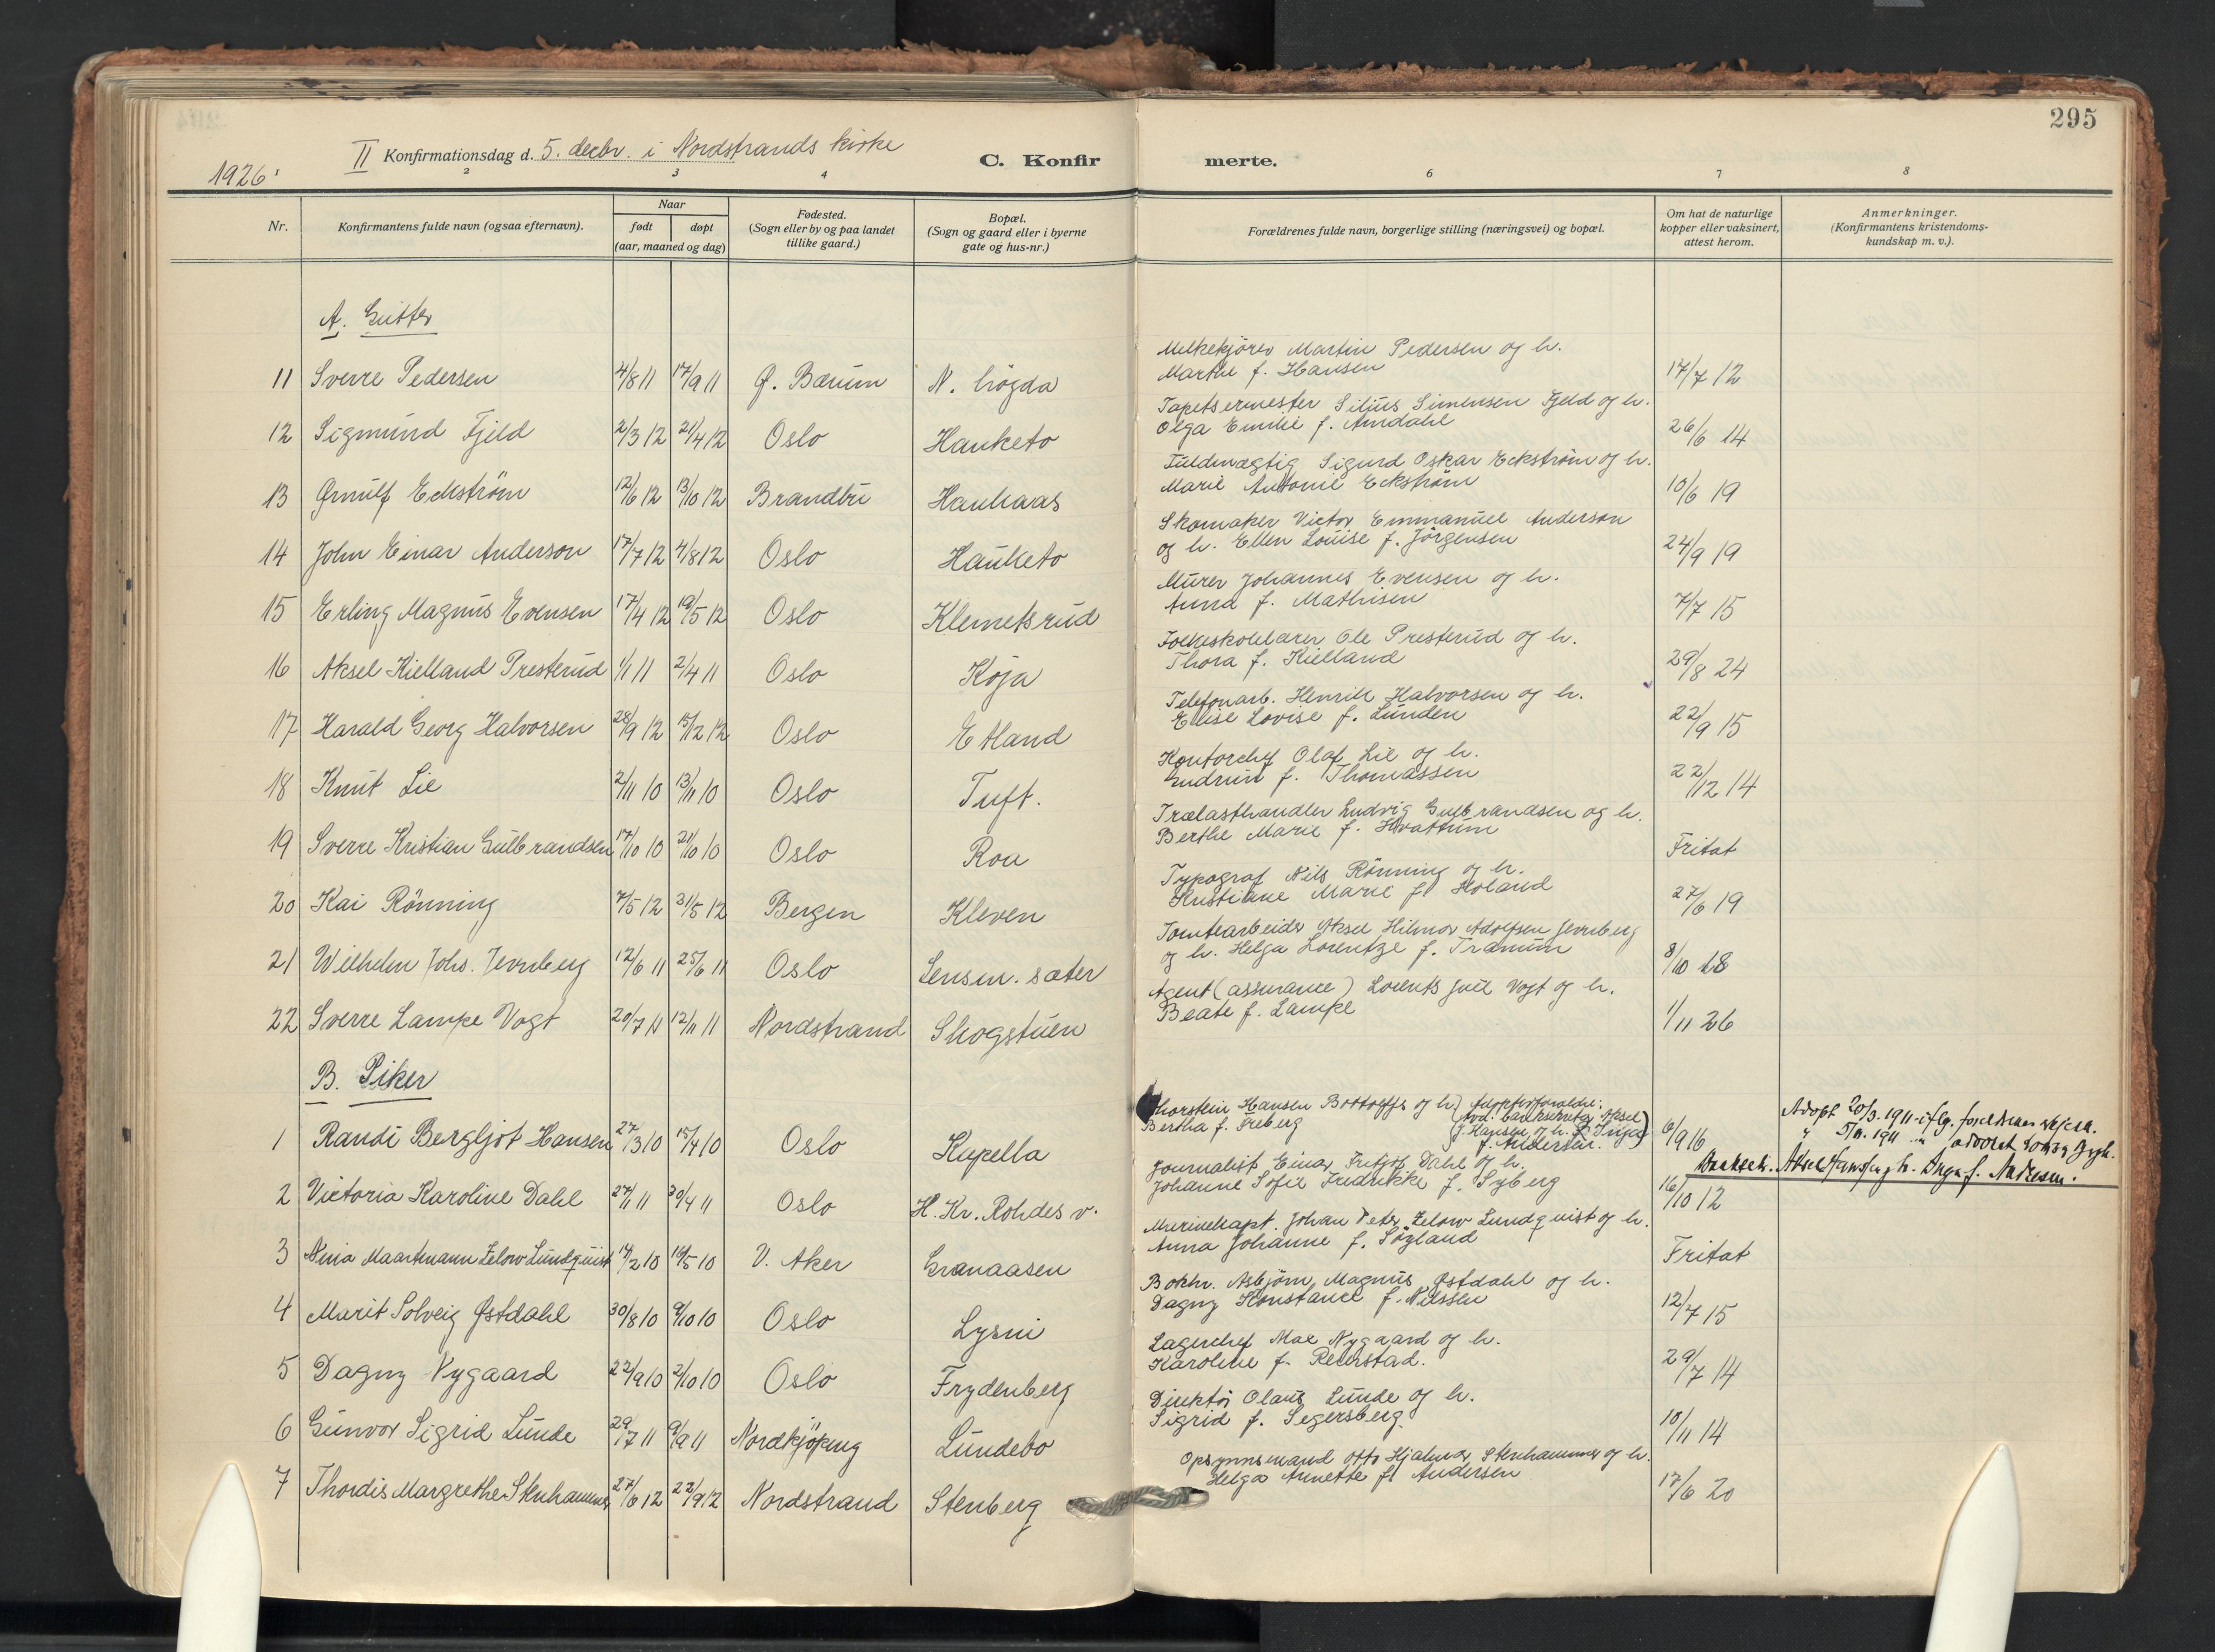 295
1926
II Konfirmationsdag d. 5. decbr. i Nordstrands kirke
C. Konfir merte.
1 2 3 4 6 7 8
Nr.
Konfirmantens fulde navn (ogsaa efternavn).
Naar
født døpt
(aar, maaned og dag)
Fødested.
(Sogn eller by og paa landet
tillike gaard.)
Bopæl.
(Sogn og gaard eller i byerne
gate og hus-nr.)
Forældrenes fulde navn, borgerlige stilling (næringsvei) og bopæl.
Om hat de naturlige
kopper eller vaksinert,
attest herom.
Anmerkninger.
(Konfirmantens kristendoms-
kundskap m. v.).
A. Gutter
Melkekjörer Martin Pedersen og h.
11 Sverre Pedersen 4/8 11 17/9 11 Ø. Bærum N. högda Marthe f. Hansen 17/7 12
Tapetsermester Silius Simensen Fjeld og h.
12 Sigmund Fjeld 2/3 12 21/4 12 Oslo Hauketo Olga Emilie f. Amdahl 26/6 14
Fuldmægtig Sigurd Oskar Eckström og h.
13 Ørnulf Eckström 12/6 12 13/10 12 Brandbu Hauhaas Marie Antonie Eckström 10/6 19
Skomaker Victor Emmanuel Anderson
14 John Einar Anderson 17/7 12 4/8 12 Oslo Hauketo og h. Ellen Louise f. Jörgensen 24/9 19
Murer Johannes Evensen og h.
15 Erling Magnus Evensen 17/4 12 19/5 12 Oslo Klemetsrud Anna f. Mathisen 7/7 15
Folkeskolelærer Ole Presterud og h.
16 Aksel Kielland Presterud 1/1 11 2/4 11 Oslo Koja Thora f. Kielland 29/8 24
Telefonarb. Henrik Halvorsen og h.
17 Harald Georg Halvorsen 28/9 12 15/12 12 Oslo Etland Elise Lovise f. Lunden 22/9 15
Kontorchef Olaf Lie og h.
18 Knut Lie 2/11 10 13/11 10 Oslo Tuft. Gudrun f. Thomassen 22/12 14
Trælasthandler Ludvig Gulbrandsen og h.
19 Sverre Kristian Gulbrandsen 17/10 10 21/10 10 Oslo Roa Berthe Marie f. Hvattum Fritat
Typograf Nils Rönning og h.
20 Kai Rönning 7/5 12 31/5 12 Bergen Kleven Kristiane Marie f. Holand 27/6 19
Tomtearbeider Aksel Hilmar Adolfsen Jernberg
21 Wilhelm Johs. Jernberg 12/6 11 25/6 11 Oslo Lensm. sæter og h. Helga Lorentze f. Tranum 8/10 18
Agent (assurance) Lorents Juel Vogt og h.
22 Sverre Lampe Vogt 20/7 11 12/11 11 Nordstrand Skogstuen Beate f. Lampe 1/11 26
B. Piker
Thorstein Hansen og h. Adoptivforældre:
1 Randi Bergljot Hansen 27/3 10 15/4 10 Oslo Kapella Bertha f. Freberg Aksel Hansen og h. Inga f. Andersen. 6/9 16
Adopt 20/3. 1911 iflg.
" 5/11. 1911
Aksel Hansen og h. Inga f. Andresen.
Journalist Einar Fritjof Dahl og h.
2 Victoria Karoline Dahl 27/1 11 30/4 11 Oslo H. Kr. Rohdes v. Johanne Sofie Fredrikke f. Syberg 16/10 12
Marinekapt. Johan Peter Zelow Lundquist og h.
3 Nina Maartmann Zelow Lundquist 14/2 10 16/5 10 V. Aker Granaasen Anna Johanne f. Sögland Fritat
Bokh. Asbjørn Magnus Østdahl og h.
4 Marit Solveig Østdahl 30/8 10 9/10 10 Oslo Lysni Dagny Konstance f. Nilssen 12/7 15
Lagerchef Max Nygaard og h.
5 Dagny Nygaard 22/9 10 2/10 10 Oslo Frydenberg Karoline f. Reierstad. 29/7 14
Direktör Olaus Lunde og h.
6 Gunvor Sigrid Lunde 29/7 11 9/9 11 Nordkjöping Lundebo Sigrid f. Segersberg. 10/11 14
Opsynsmand Otto Hjalmar Stenhammer og h.
7 Thordis Margrethe Stenhammer 27/6 12 22/9 12 Nordstrand Stenberg Helga Annette f. Andersen 17/6 20